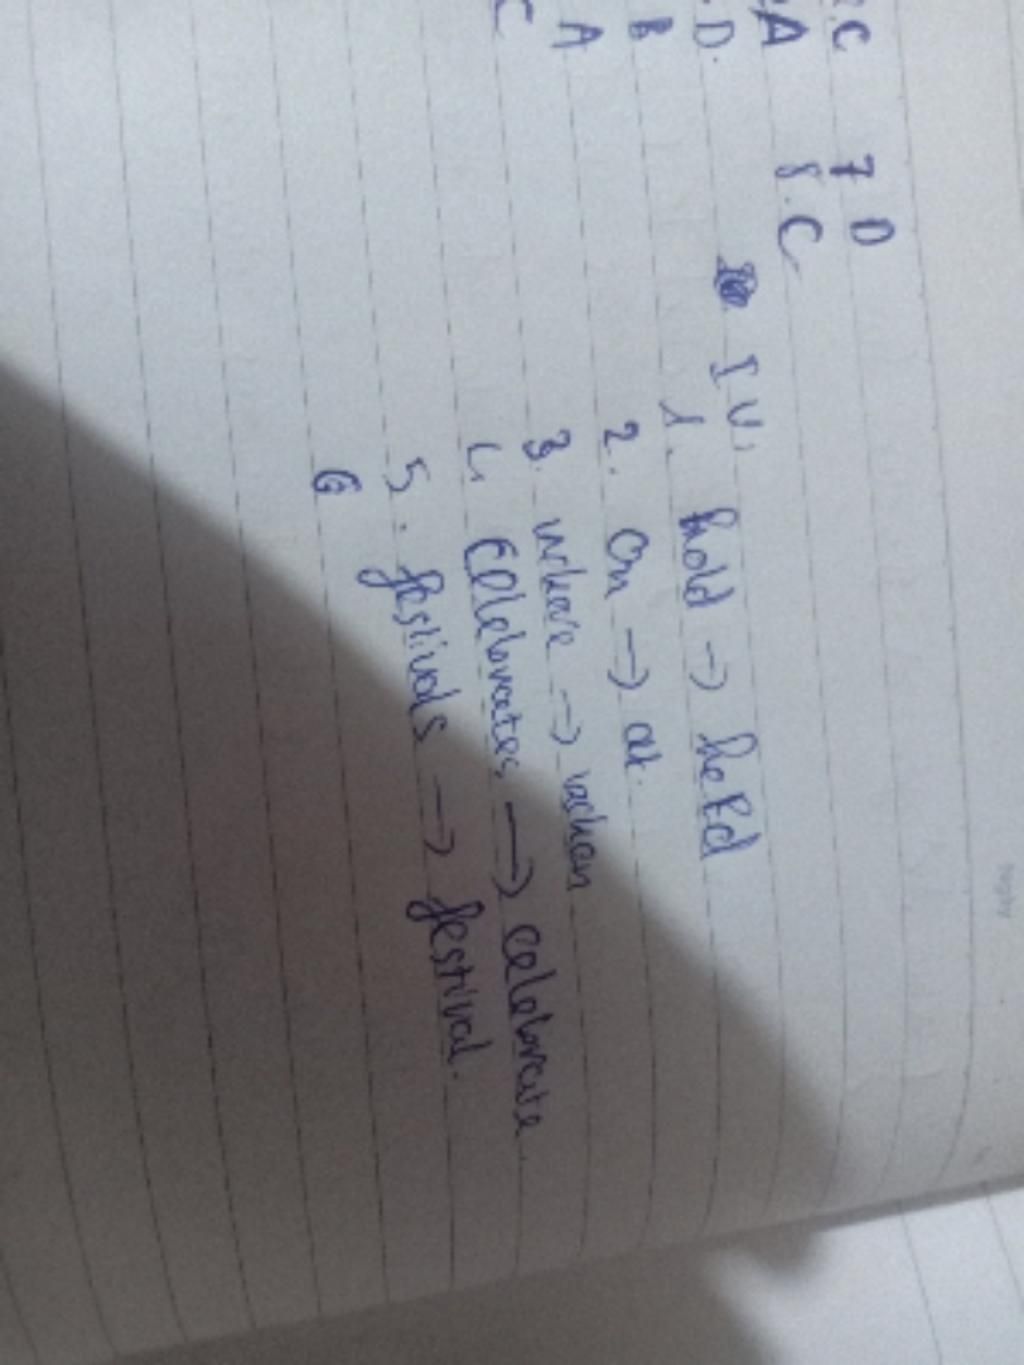 2.C 7 D
A 8.C
D.
B
A
C
IV.
1. hold → held
2. On → at.
3. where → when
4. Celebrates → celebrate.
5. festivals → festival.
6